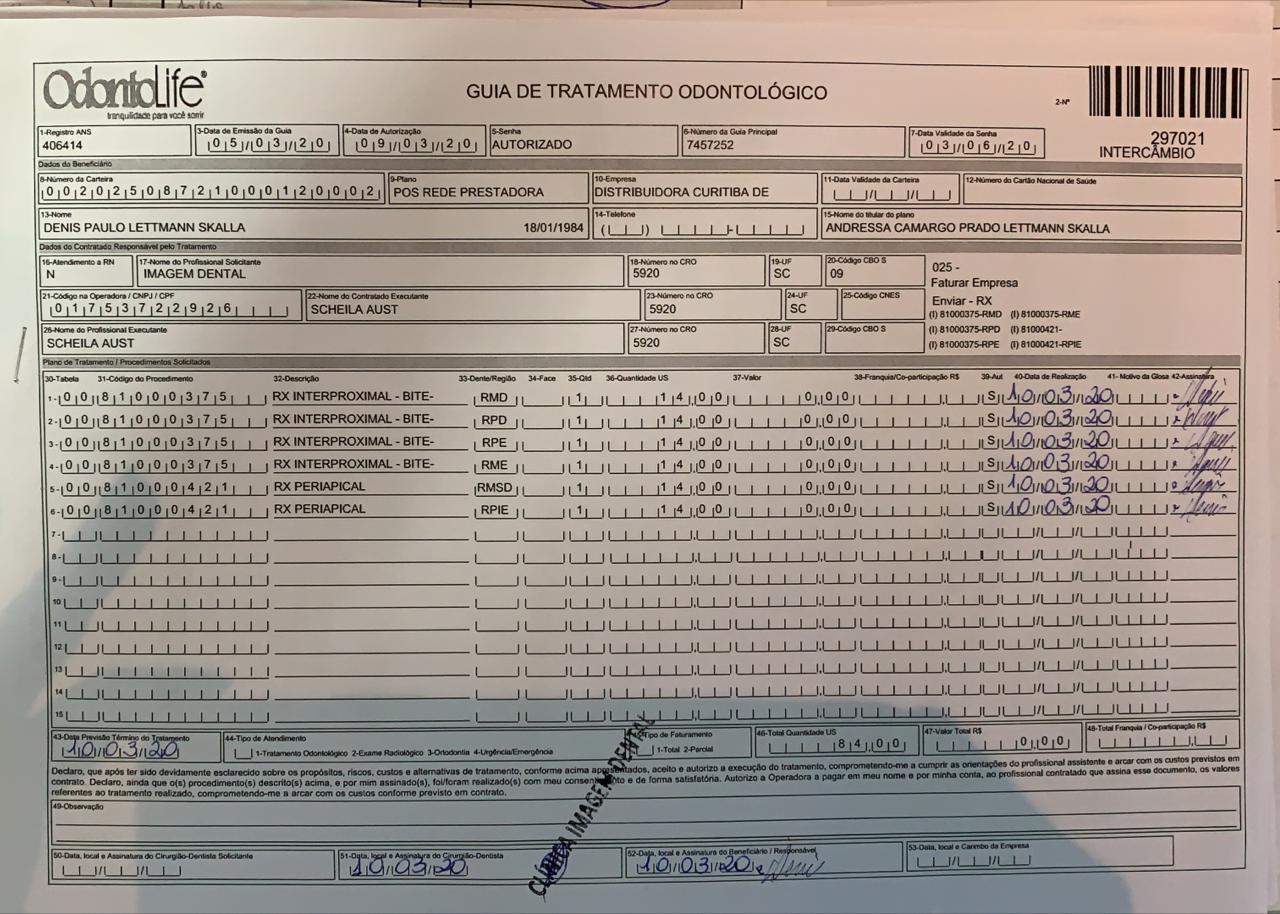 OdontoLife®
tranquilidade para você sorrir
GUIA DE TRATAMENTO ODONTOLÓGICO
2-Nº
297021
INTERCÂMBIO
1-Registro ANS
406414
3-Data de Emissão da Guia
05/03/20
4-Data de Autorização
09/03/20
5-Senha
AUTORIZADO
6-Número da Guia Principal
7457252
7-Data Validade da Senha
03/06/20
Dados do Beneficiário
8-Número da Carteira
00202508721000120002
9-Plano
POS REDE PRESTADORA
10-Empresa
DISTRIBUIDORA CURITIBA DE
11-Data Validade da Carteira
12-Número do Cartão Nacional de Saúde
13-Nome
DENIS PAULO LETTMANN SKALLA 18/01/1984
14-Telefone
15-Nome do titular do plano
ANDRESSA CAMARGO PRADO LETTMANN SKALLA
Dados do Contratado Responsável pelo Tratamento
16-Atendimento a RN
N
17-Nome do Profissional Solicitante
IMAGEM DENTAL
18-Número no CRO
5920
19-UF
SC
20-Código CBO S
09
025 -
Faturar Empresa
Enviar - RX
(I) 81000375-RMD (I) 81000375-RME
(I) 81000375-RPD (I) 81000421-
(I) 81000375-RPE (I) 81000421-RPIE
21-Código na Operadora / CNPJ / CPF
01753722926
22-Nome do Contratado Executante
SCHEILA AUST
23-Número no CRO
5920
24-UF
SC
25-Código CNES
26-Nome do Profissional Executante
SCHEILA AUST
27-Número no CRO
5920
28-UF
SC
29-Código CBO S
Plano de Tratamento / Procedimentos Solicitados
30-Tabela 31-Código do Procedimento 32-Descrição 33-Dente/Região 34-Face 35-Qtd 36-Quantidade US 37-Valor 38-Franquia/Co-participação R$ 39-Aut 40-Data de Realização 41- Motivo da Glosa 42-Assinatura
1- 00 81000375 RX INTERPROXIMAL - BITE- RMD 1 14,00 0,00 S 10/03/20
2- 00 81000375 RX INTERPROXIMAL - BITE- RPD 1 14,00 0,00 S 10/03/20
3- 00 81000375 RX INTERPROXIMAL - BITE- RPE 1 14,00 0,00 S 10/03/20
4- 00 81000375 RX INTERPROXIMAL - BITE- RME 1 14,00 0,00 S 10/03/20
5- 00 81000421 RX PERIAPICAL RMSD 1 14,00 0,00 S 10/03/20
6- 00 81000421 RX PERIAPICAL RPIE 1 14,00 0,00 S 10/03/20
7-
8-
9-
10
11
12
13
14
15
43-Data Previsão Término do Tratamento
10/03/20
44-Tipo de Atendimento
1-Tratamento Odontológico 2-Exame Radiológico 3-Ortodontia 4-Urgência/Emergência
Tipo de Faturamento
1-Total 2-Parcial
46-Total Quantidade US
84,00
47-Valor Total R$
0,00
48-Total Franquia / Co-participação R$
Declaro, que após ter sido devidamente esclarecido sobre os propósitos, riscos, custos e alternativas de tratamento, conforme acima apresentados, aceito e autorizo a execução do tratamento, comprometendo-me a cumprir as orientações do profissional assistente e arcar com os custos previstos em
contrato. Declaro, ainda que o(s) procedimento(s) descrito(s) acima, e por mim assinado(s), foi/foram realizado(s) com meu consentimento e de forma satisfatória. Autorizo a Operadora a pagar em meu nome e por minha conta, ao profissional contratado que assina esse documento, os valores
referentes ao tratamento realizado, comprometendo-me a arcar com os custos conforme previsto em contrato.
49-Observação
CLÍNICA IMAGEM DENTAL
50-Data, local e Assinatura do Cirurgião-Dentista Solicitante
51-Data, local e Assinatura do Cirurgião-Dentista
10/03/20
52-Data, local e Assinatura do Beneficiário / Responsável
10/03/20
53-Data, local e Carimbo da Empresa